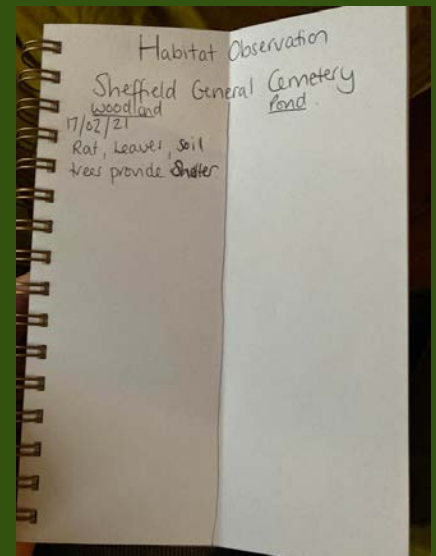 Habitat Observation
Sheffield General Cemetery
Woodland
Pond.
17/02/21
Rat, Leaves, soil
trees provide Shelter